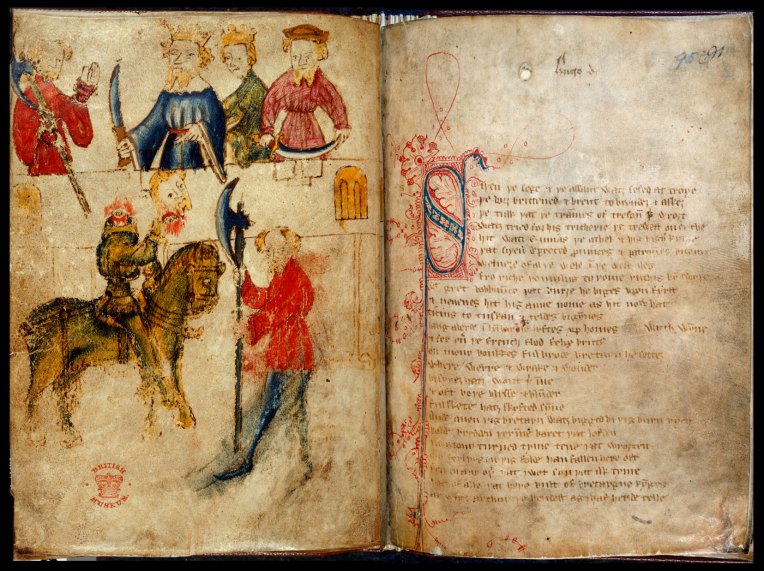 BRITISH
MUSEUM
Hugo de
95 91
Siþen þe sege & þe assaut watz sesed at troye
þe borȝ brittened & brent to brondeȝ & askeȝ
þe tulk þat þe trammes of tresoun þer wroȝt
watz tried for his tricherie þe trewest on erthe
hit watz Ennias þe athel & his highe kynde
þat siþen depreced prouinces & patrounes bicome
welneȝe of al þe wele in þe west iles
fro riche romulus to rome ricchis hym swyþe
gret bobbaunce þat burȝe he biges vpon fyrst
& neuenes hit his aune nome as hit now hat
ticius to tuskan & teldes bigynnes
langaberde in lumbardie lyftes vp homes wyth wynne
& fer ouer þe french flod felix brutus
on mony bonkkes ful brode bretayn he settez
where werre & wrake & wonder
bi syþez hatz wont þer inne
& oft boþe blysse & blunder
ful skete hatz skyfted synne
Ande quen þis bretayn watz bigged bi þis burn rych
bolde bredden þer inne baret þat lofden
in mony turned tyme tene þat wroȝten
mo ferlyes on þis folde han fallen here oft
þen in any oþer þat I wot syn þat ilk tyme
bot of alle þat here bult of bretaygne kynges
ay watz arthur þe hendest as I haf herde telle